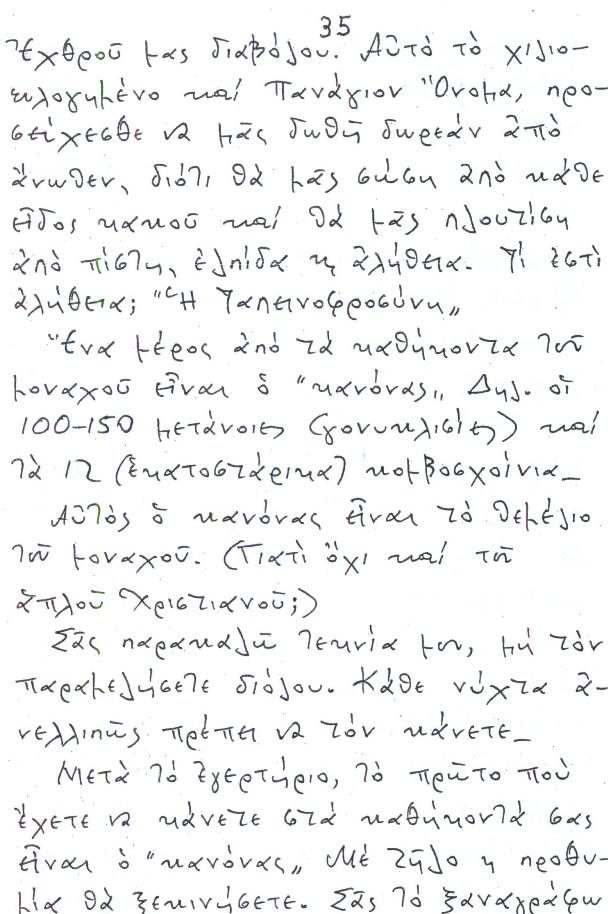 35
Ἐχθροῦ μας διαβόλου. Αὐτὸ τὸ χιλιο-
ευλογημένο καί Πανάγιον Ὄνομα, προ-
σεύχεσθε νὰ μᾶς δωθῆ δωρεάν ἀπὸ
ἄνωθεν, διότι θὰ μᾶς σώση ἀπὸ κάθε
εἶδος κακοῦ καί θὰ μᾶς πλουτίση
ἀπὸ πίστη, ἐλπίδα κ ἀλήθεια. Τί ἐστὶ
ἀλήθεια; "Ἡ Ταπεινοφροσύνη„
Ἕνα μέρος ἀπὸ τὰ καθήκοντα τοῦ
μοναχοῦ εἶναι ὁ "κανόνας„ Δηλ. οἱ
100-150 μετάνοιες (γονυκλισίες) καί
τὰ 12 (ἑκατοστάρικα) κομβοσχοίνια_
Αὐτὸς ὁ κανόνας εἶναι τὸ θεμέλιο
τοῦ μοναχοῦ. (Γιατὶ ὄχι καί τοῦ
ἁπλοῦ Χριστιανοῦ;)
Σᾶς παρακαλῶ τεκνία μου, μή τὸν
παραμελήσετε διόλου. Κάθε νύχτα ἀ-
νελλιπῶς πρέπει νὰ τὸν κάνετε_
Μετὰ τὸ ἐγερτήριο, τὸ πρῶτο ποὺ
ἔχετε νὰ κάνετε στὰ καθήκοντά σας
εἶναι ὁ "κανόνας„ Μὲ ζῆλο κ προθυ-
μία θὰ ξεκινήσετε. Σᾶς τὸ ξαναγράφω